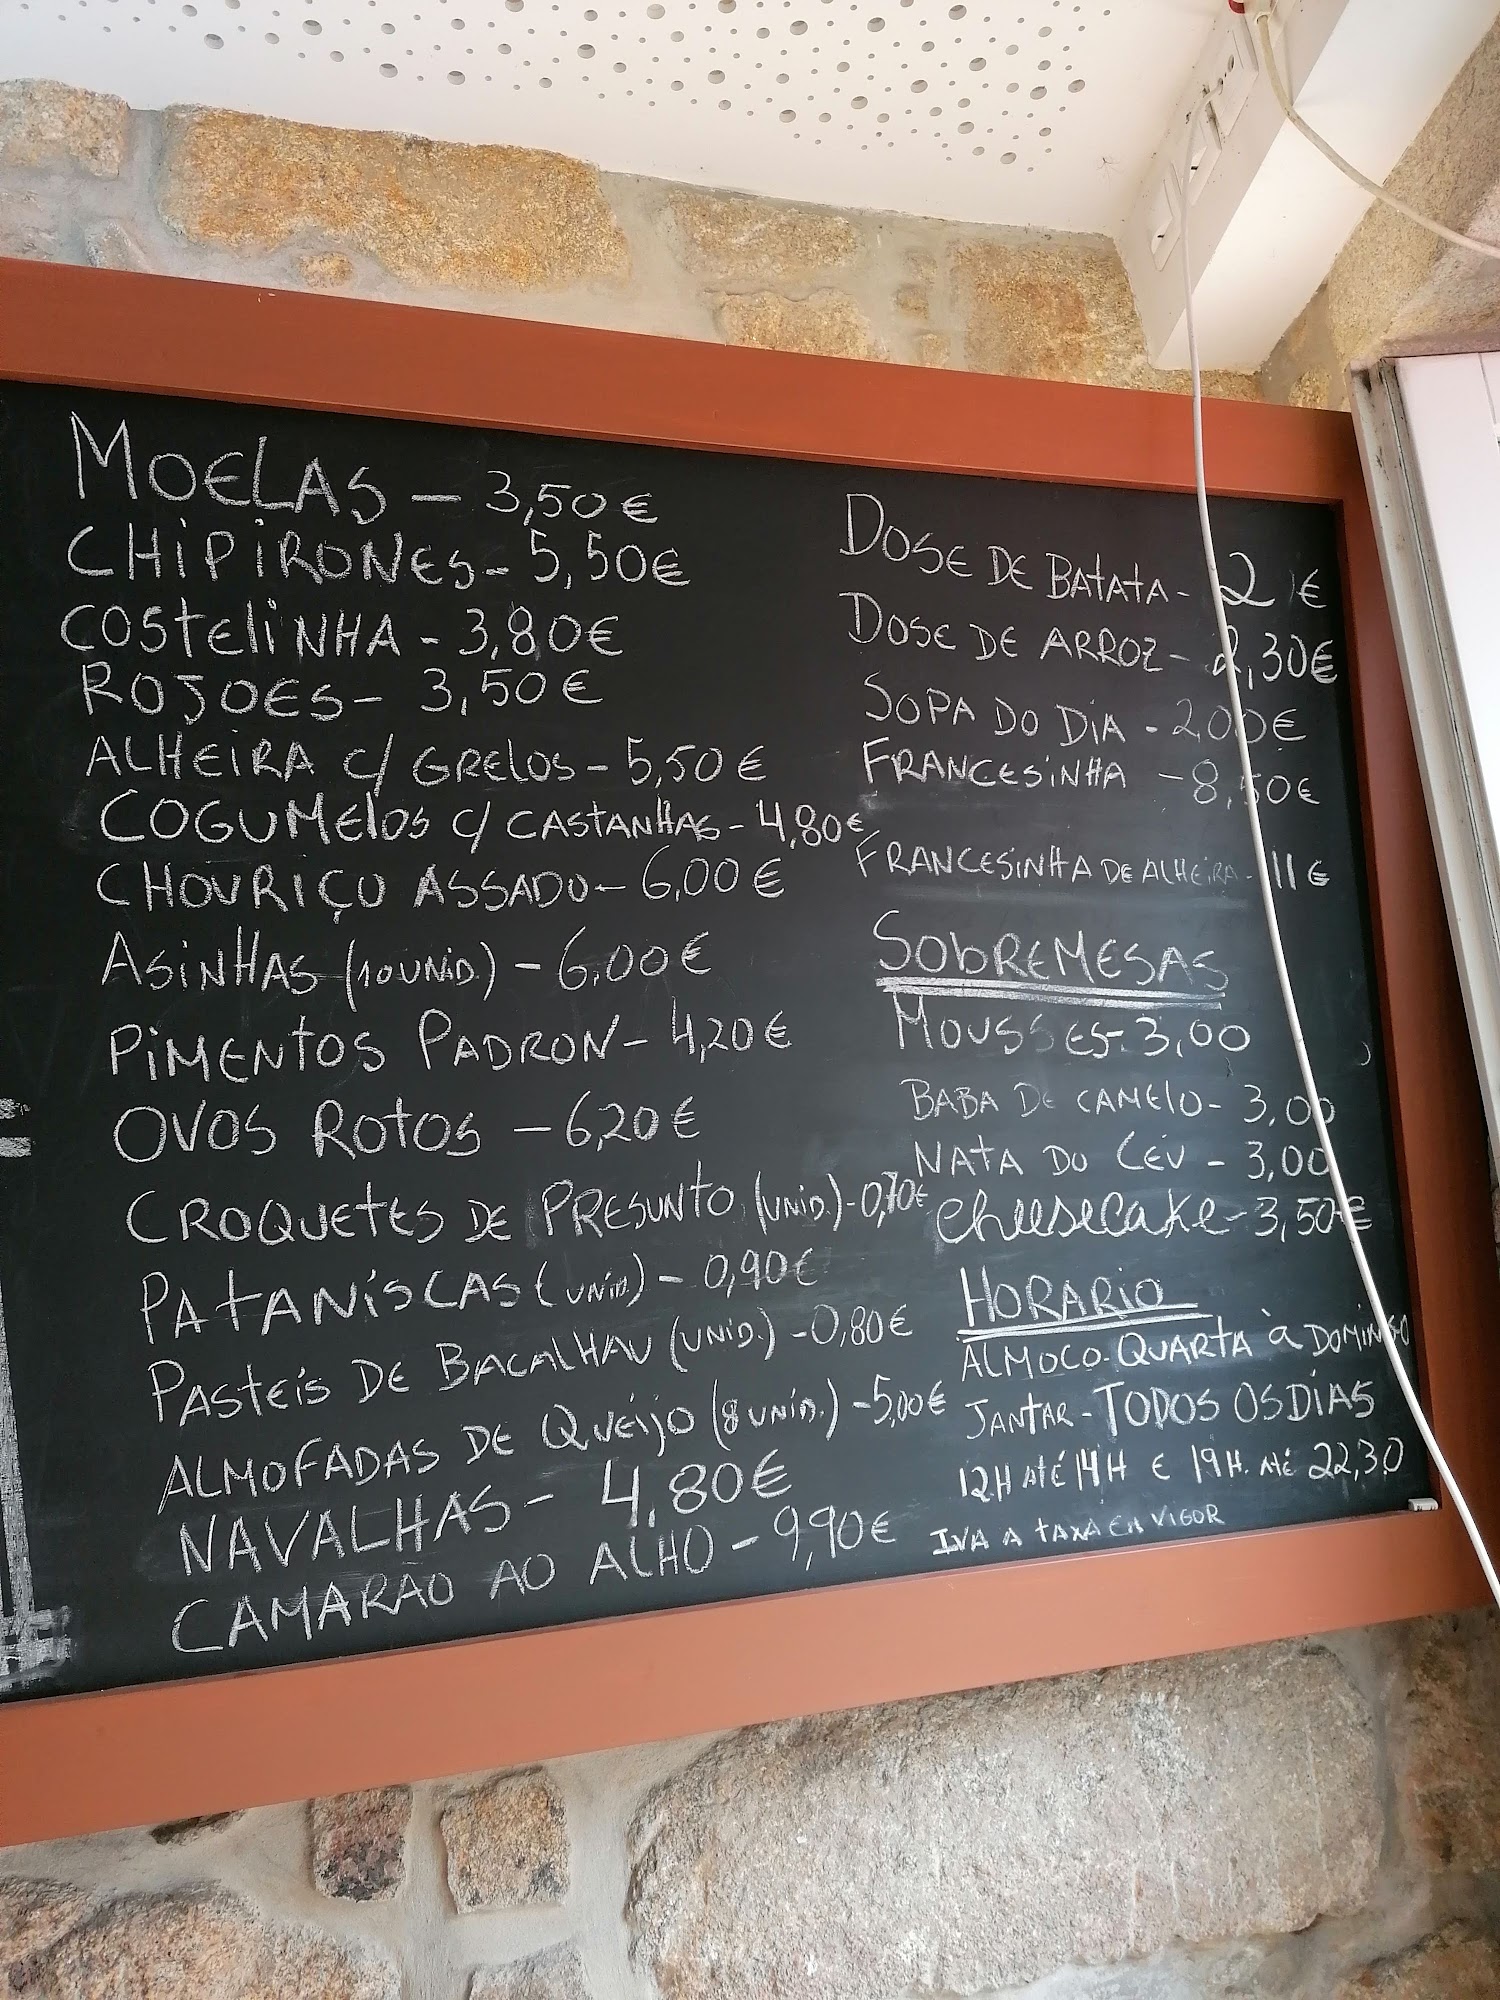 MOELAS — 3,50€
CHIPIRONES - 5,50€
COSTELINHA - 3,80€
ROJOES - 3,50€
ALHEIRA C/ GRELOS - 5,50€
COGUMELOS C/ CASTANHAS - 4,80€
CHOURIÇO ASSADO - 6,00€
ASINHAS (10 UNID.) - 6,00€
PIMENTOS PADRON - 4,20€
OVOS ROTOS - 6,20€
CROQUETES DE PRESUNTO (UNID.) - 0,70€
PATANISCAS (UNID.) - 0,90€
PASTEIS DE BACALHAU (UNID.) - 0,80€
ALMOFADAS DE QUEIJO (8 UNID.) - 5,00€
NAVALHAS - 4,80€
CAMARÃO AO ALHO - 9,90€
DOSE DE BATATA - 2 €
DOSE DE ARROZ - 2,30€
SOPA DO DIA - 2,00€
FRANCESINHA - 8,50€
FRANCESINHA DE ALHEIRA - 11€
SOBREMESAS
MOUSSES - 3,00
BABA DE CAMELO - 3,00
NATA DO CÉU - 3,00
Cheesecake - 3,50€
HORARIO
ALMOCO - QUARTA À DOMINGO
JANTAR - TODOS OS DIAS
12H ATÉ 14H E 19H. ATÉ 22,30
IVA A TAXA EM VIGOR